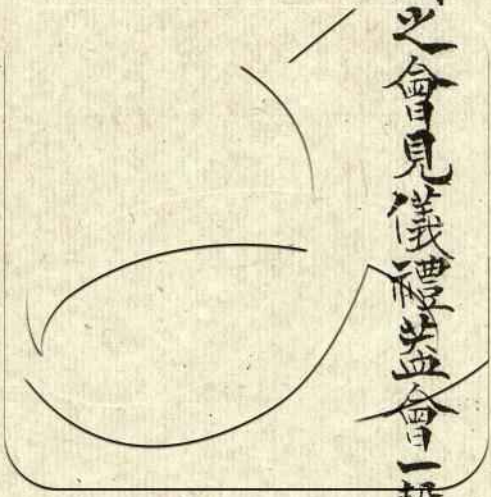 之會見儀禮蓋會一